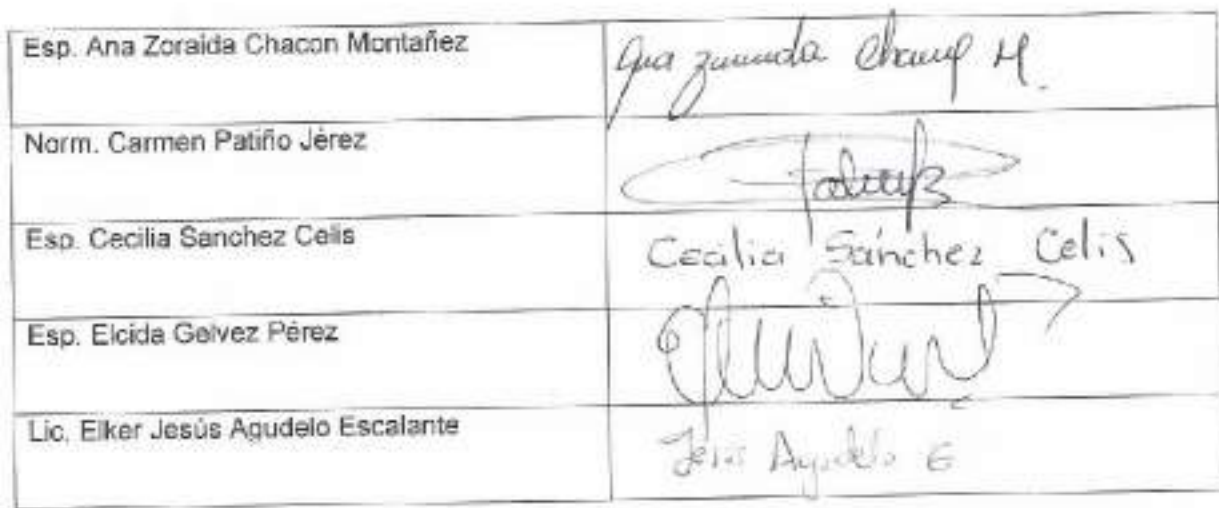 Esp. Ana Zoraida Chacon Montañez
Ana Zoraida Chacon M.
Norm. Carmen Patiño Jérez
Esp. Cecilia Sanchez Celis
Cecilia Sánchez Celis
Esp. Elcida Gelvez Pérez
Lic. Elker Jesús Agudelo Escalante
Jesús Agudelo E